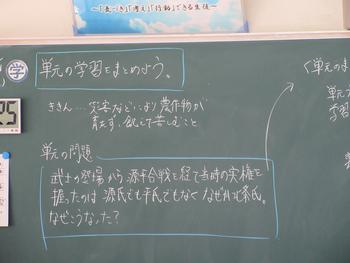 ～「気づき」「考え」「行動」できる生徒～
学
単元の学習をまとめよう。
25
ききん…災害などにより農作物が
育たず、飢えで苦しむこと
単元の問題
武士の登場から源平合戦を経て当時の実権を
握ったのは源氏でも平氏でもなくなぜか北条氏。
なぜこうなった？
＜単元の
単元
学習